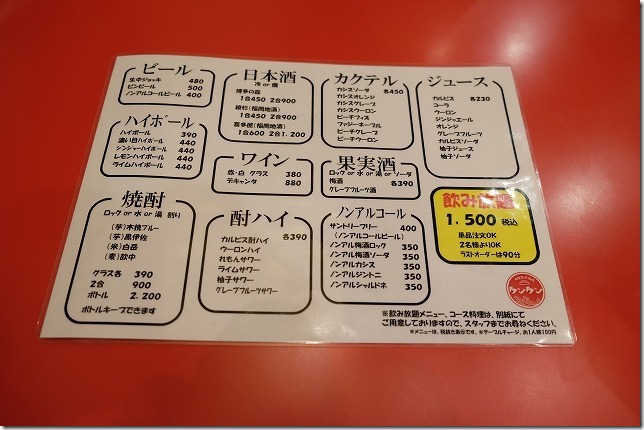 ビール
生中ジョッキ 480
ビンビール 500
ノンアルコールビール 400
ハイボール
ハイボール 390
濃い目ハイボール 440
ジンジャーハイボール 440
レモンハイボール 440
ライムハイボール 440
焼酎
ロック or 水 or 湯 割り
(芋)木挑ブルー
(芋)黒伊佐
(米)白岳
(麦)歓中
グラス各 390
2合 900
ボトル 2.200
ボトルキープできます
日本酒
冷 or 燗
博多の森
1合450 2合900
綾杉(福岡地酒)
1合450 2合900
喜多屋(福岡地酒)
1合600 2合1.200
ワイン
赤・白 グラス 380
デキャンタ 880
酎ハイ
カルピス酎ハイ 各390
ウーロンハイ
れもんサワー
ライムサワー
柚子サワー
グレープフルーツサワー
カクテル
カシスソーダ 各450
カシスオレンジ
カシスグレープ
カシスウーロン
ピーチフィズ
ファジーネーブル
ピーチグレープ
ピーチウーロン
果実酒
ロック or 水 or 湯 or ソーダ
梅酒 各390
グレープフルーツ酒
ノンアルコール
サントリーフリー 400
(ノンアルコールビール)
ノンアル梅酒ロック 350
ノンアル梅酒ソーダ 350
ノンアルカシス 350
ノンアルジントニ 350
ノンアルシャルドネ 350
ジュース
カルピス 各230
コーラ
ウーロン
ジンジャエール
オレンジ
グレープフルーツ
カルピスソーダ
柚子ジュース
柚子ソーダ
飲み放題
1.500 税込
単品注文OK
2名様よりOK
ラストオーダーは90分
ケンケン
※飲み放題メニュー、コース料理は、別紙にて
ご用意しておりますので、スタッフまでお尋ねください。
※メニューは、税抜き表示です。※テーブルチャージ、お1人様100円